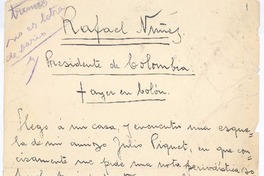 no es letra
de Darío
Rafael Núñez
Presidente de Colombia.
† ayer en Colón.
Llego a mi casa, y encuentro una esque-
la de mi amigo Julio Piquet, en que con-
cisamente me pide una nota periodística so